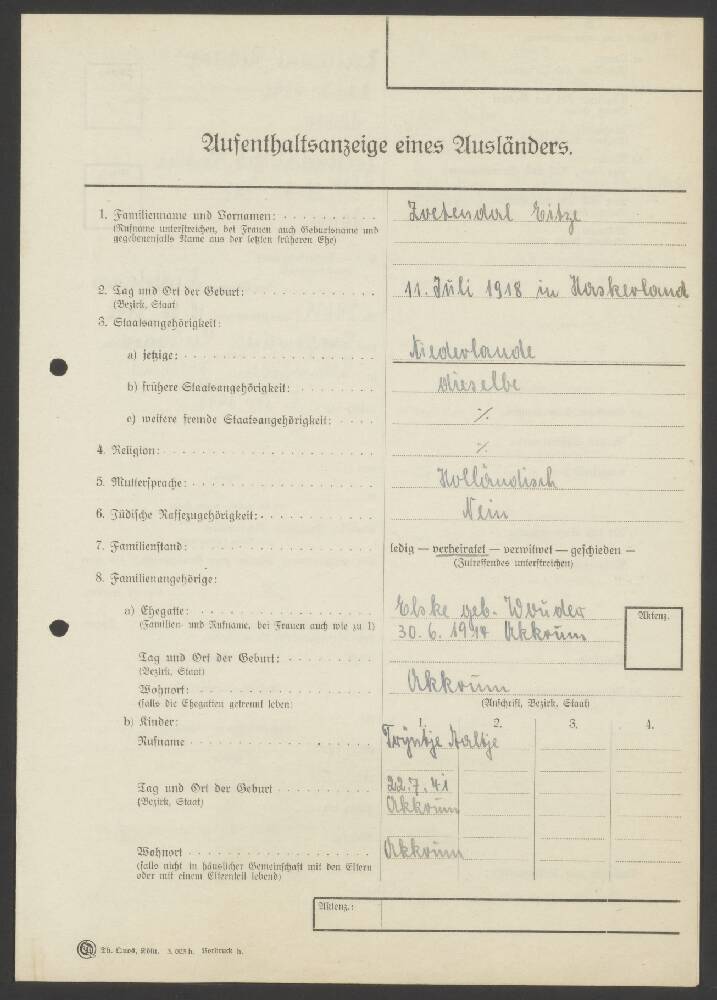 Aufenthaltsanzeige eines Ausländers.
1. Familienname und Vornamen: Zoetendal Eitze
(Rufname unterstreichen, bei Frauen auch Geburtsname und
gegebenenfalls Name aus der letzten früheren Ehe)
2. Tag und Ort der Geburt: 11. Juli 1918 in Haskerland
(Bezirk, Staat)
3. Staatsangehörigkeit:
a) jetzige: Niederlande
b) frühere Staatsangehörigkeit: dieselbe
c) weitere fremde Staatsangehörigkeit: ./.
4. Religion: ./.
5. Muttersprache: Holländisch
6. Jüdische Rassezugehörigkeit: Nein
7. Familienstand: ledig — verheiratet — verwitwet — geschieden —
(Zutreffendes unterstreichen)
8. Familienangehörige:
a) Ehegatte: Elske geb. Wouder
(Familien- und Rufname, bei Frauen auch wie zu 1) 30. 6. 1914 Akkrum
Aktenz.
Tag und Ort der Geburt:
(Bezirk, Staat)
Wohnort: Akkrum
(falls die Ehegatten getrennt leben) (Anschrift, Bezirk, Staat)
b) Kinder: 1. 2. 3. 4.
Rufname Trijntje Aaltje
Tag und Ort der Geburt 22. 7. 41
(Bezirk, Staat) Akkrum
Wohnort Akkrum
(falls nicht in häuslicher Gemeinschaft mit den Eltern
oder mit einem Elternteil lebend)
Aktenz.:
Köln. Vordruck